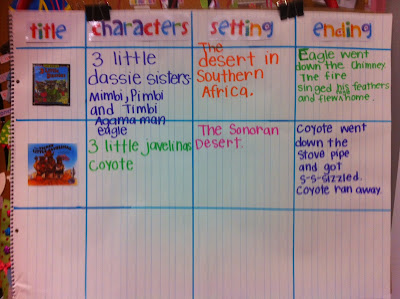 title characters setting ending
3 little
dassie sisters-
Mimbi, Pimbi
and Timbi
Agama man
eagle
The
desert in
Southern
Africa.
Eagle went
down the chimney.
The fire
singed his feathers
and flew home.
3 little javelinas
coyote
The Sonoran
Desert.
Coyote went
down the
stove pipe
and got
s-s-sizzled.
Coyote ran away.